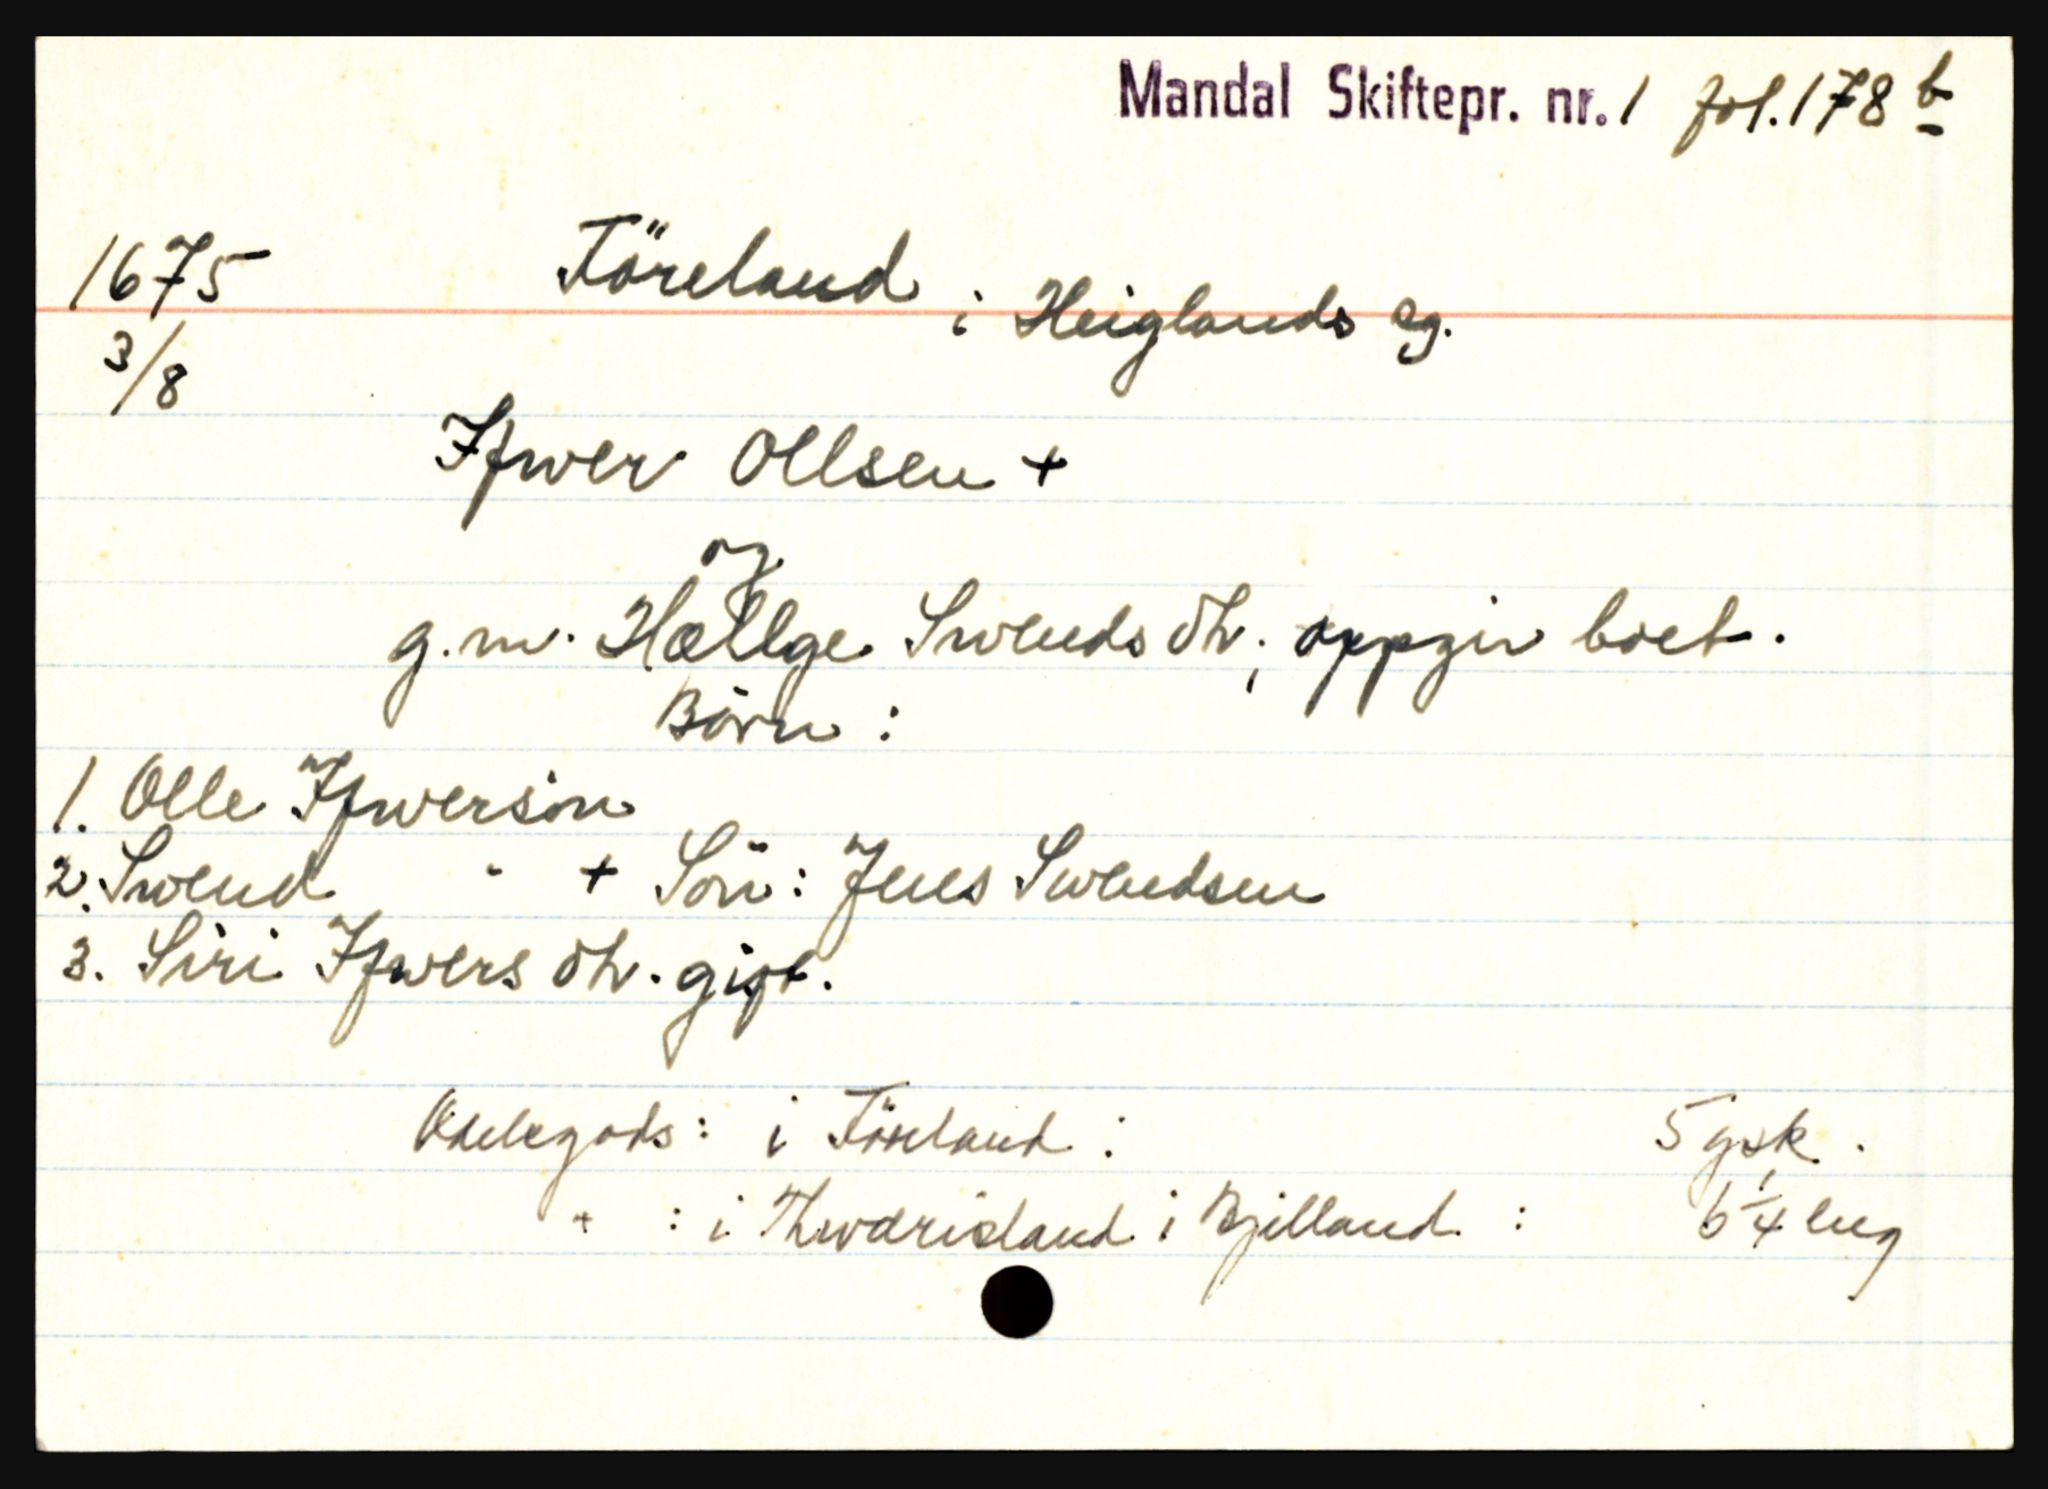 Mandal Skiftepr. nr. 1 fol. 178 b
1675 Töreland i Heiglands sg.
3/8
Ifwer Ollsen +
og
g.m. Hællge Swends dtr., oppgir boet.
Börn :
1. Olle Ifwersön
2. Swend " + Sön: Jens Swendsen
3. Siri Ifwers dtr. gift.
Odelsgods: i Töreland : 5 gsk.
" : i Thwærisland i Bjelland : 6 1/4 eng